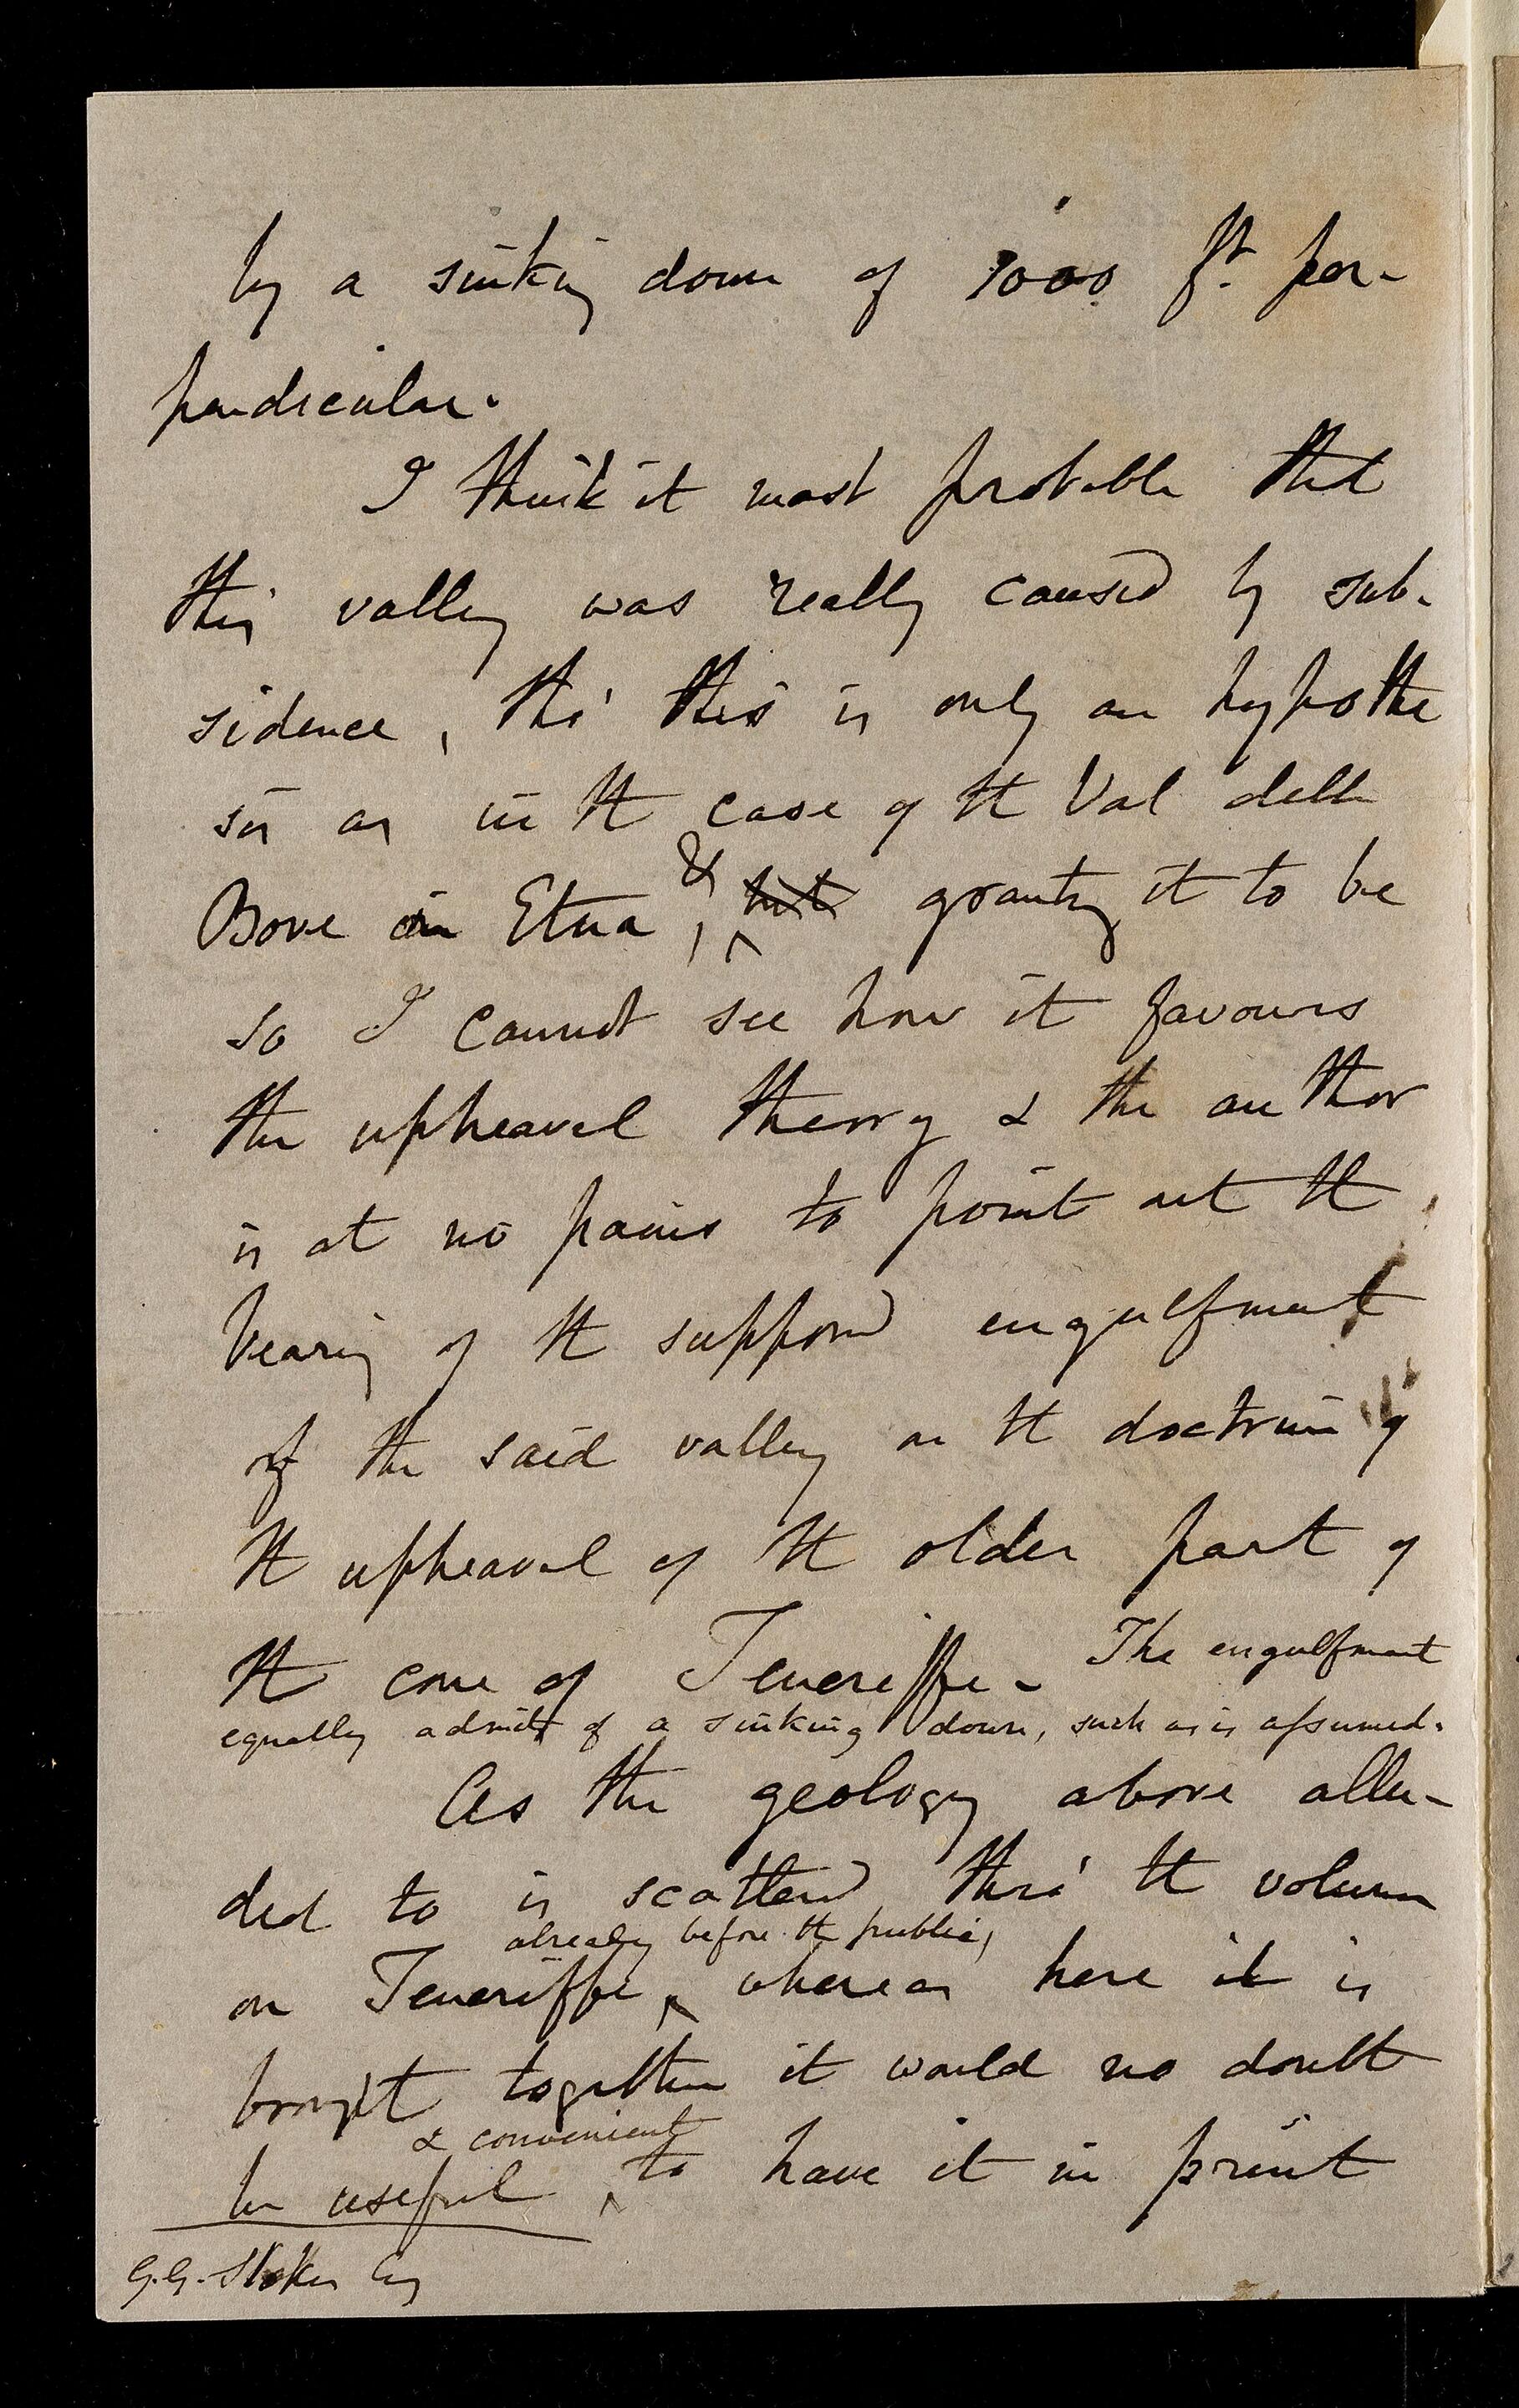 by a sinking down of 7000 ft. per-
pendicular.
I think it most probable that
this valley was really caused by sub-
sidence, tho' this is only an hypothe
sis as in the case of the Val delle
Bove in Etna, & but granting it to be
so I cannot see how it favours
the upheaval theory & the author
is at no pains to point out the
bearing of the supposed engulfment
of the said valley on the doctrine of
the upheaval of the older part of
the cone of Teneriffe. The engulfment
equally admits of a sinking down, such as is assumed.
As the geology above allu-
ded to is scattered thro' the volume
already before the public,
on Teneriffe, whereas here it is
brought together it would no doubt
& convenient
be useful to have it in print
G.G. Stokes Esq